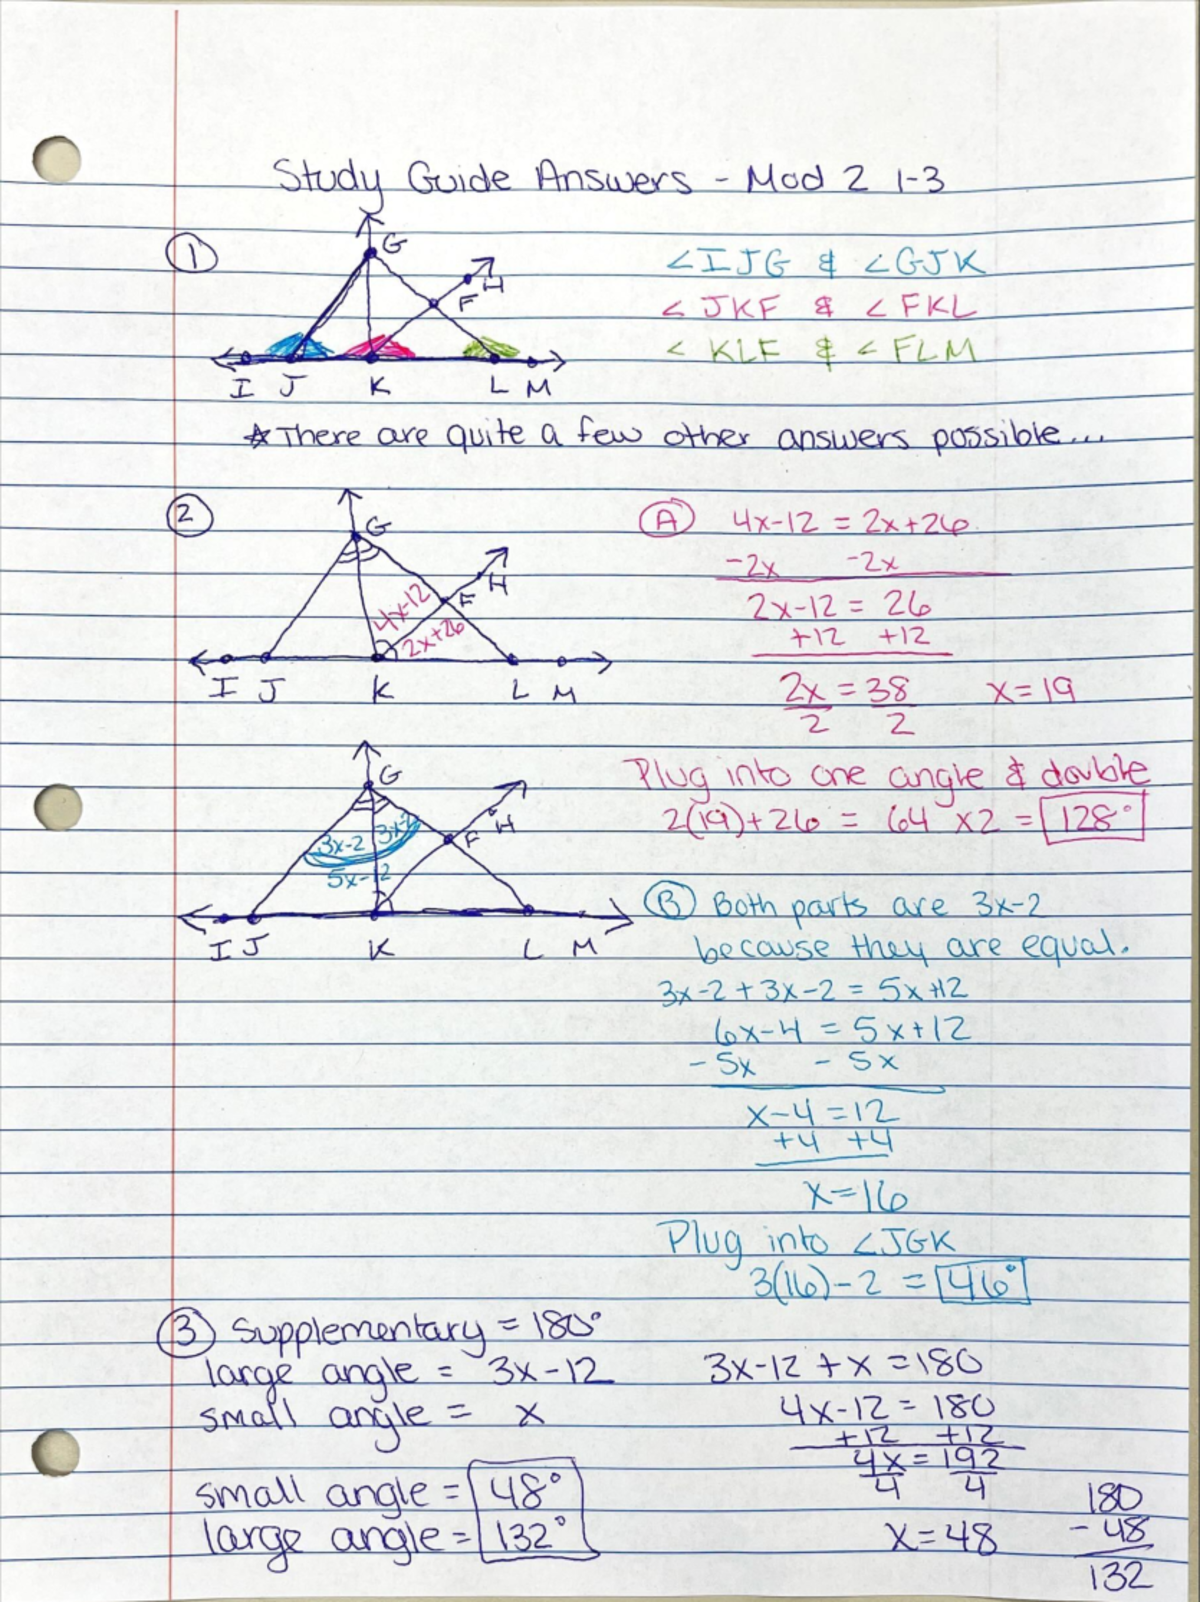 Study Guide Answers - Mod 2 1-3
① G
H
F
I J K L M
∠IJG & ∠GJK
∠JKF & ∠FKL
∠KLF & ∠FLM
☆There are quite a few other answers possible...
② G
H
F
4x-12
2x+26
I J K L M
Ⓐ 4x-12 = 2x+26
-2x -2x
2x-12 = 26
+12 +12
2x = 38 x=19
2 2
Plug into one angle & double
2(19)+26 = 64 x2 = 128°
G
H
F
3x-2 3x-2
5x-12
I J K L M
Ⓑ Both parts are 3x-2
because they are equal.
3x-2+3x-2 = 5x+12
6x-4 = 5x+12
-5x -5x
x-4 = 12
+4 +4
x=16
Plug into ∠JGK
3(16)-2 = 46°
③ Supplementary = 180°
large angle = 3x-12
small angle = x
small angle = 48°
large angle = 132°
3x-12 + x = 180
4x-12 = 180
+12 +12
4x = 192
4 4
x=48
180
-48
132